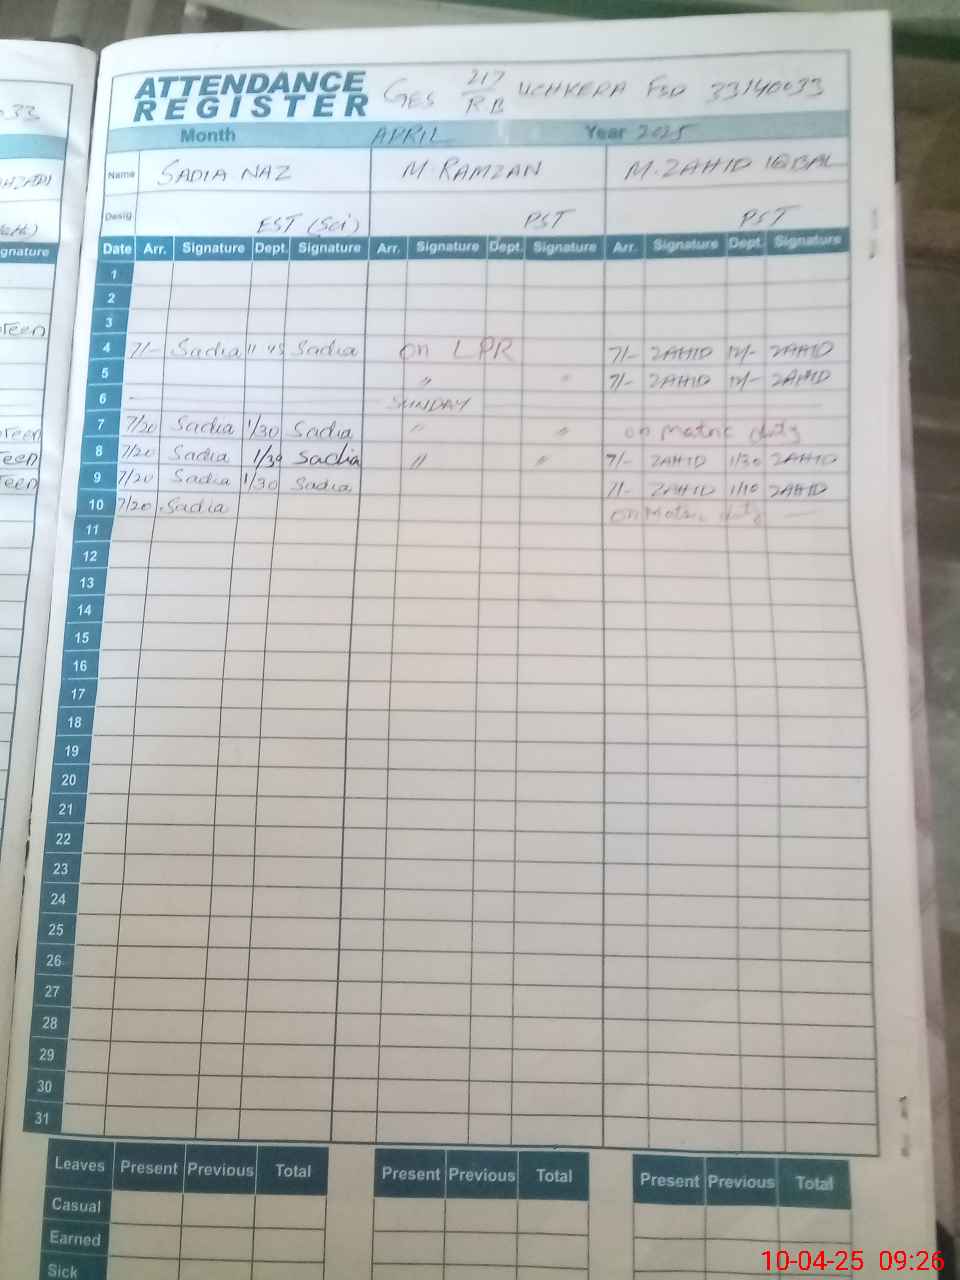 ATTENDANCE REGISTER GES 217/RB UCHKERA FSD 33140033
Month APRIL Year 2025
Name SADIA NAZ M. RAMZAN M. ZAHID IQBAL
Desig EST (Sci) PST PST
Date Arr. Signature Dept. Signature Arr. Signature Dept. Signature Arr. Signature Dept. Signature
1
2
3
4 7/- Sadia 11 45 Sadia on LPR 7/- ZAHID 12/- ZAHID
5 〃 〃 7/- ZAHID 12/- ZAHID
6 SUNDAY
7 7/20 Sadia 1/30 Sadia 〃 〃 on matric duty
8 7/20 Sadia 1/30 Sadia 〃 〃 7/- ZAHID 1/30 ZAHID
9 7/20 Sadia 1/30 Sadia 7/- ZAHID 1/10 ZAHID
10 7/20 Sadia on Matric duty
11
12
13
14
15
16
17
18
19
20
21
22
23
24
25
26
27
28
29
30
31
Leaves Present Previous Total Present Previous Total Present Previous Total
Casual
Earned
Sick
10-04-25 09:26